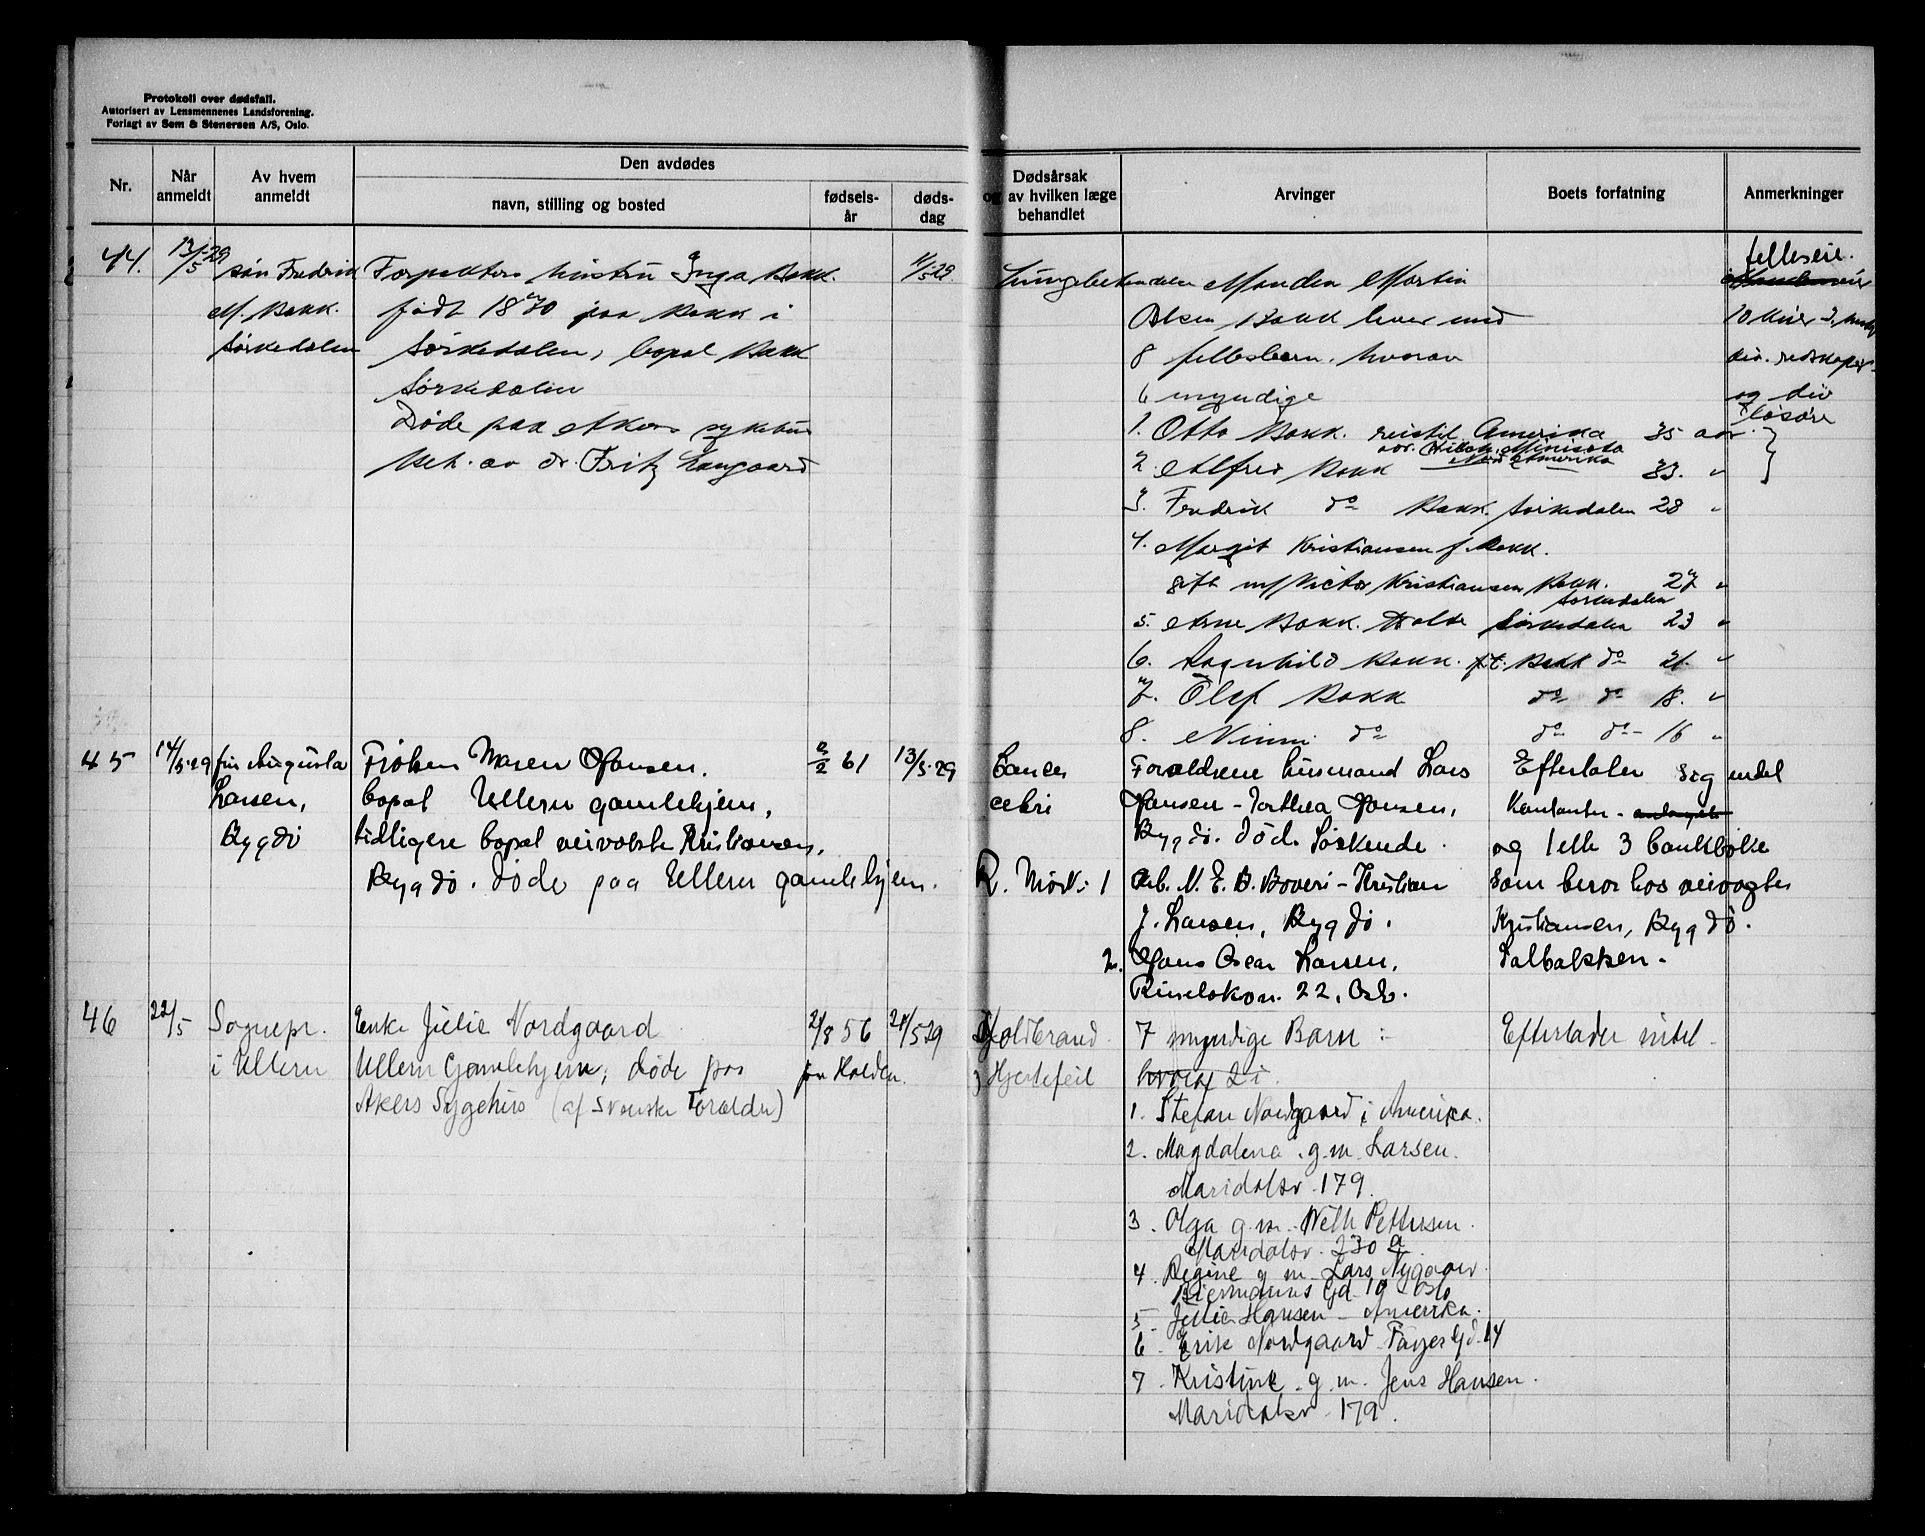 Protokoll over dødsfall.
Autorisert av Lensmennenes Landsforening.
Forlagt av Sem & Stenersen A/S, Oslo.
Nr.
Når anmeldt
Av hvem anmeldt
Den avdødes
navn, stilling og bosted
fødsels-år
døds-dag
Dødsårsak
og av hvilken læge
behandlet
Arvinger
Boets forfatning
Anmerkninger
44.
13/5-29
søn Fredrik
M. Bakk.
Sørkedalen
Forpakters hustru Inga Bakk.
født 1870 paa Bakk i
Sørkedalen, bopæl Bakk
Sørkedalen
Døde paa Akers sykehus
beh. av dr. Fritz Laugaard
11/5-29.
Manden Martin
Olsen Bakk lever med
8 fellesbarn, hvorav
6 myndige
1. Otto Bakk. reist til Amerika 35 aar
Nord Amerika
2. Alfred Bakk 33. "
3. Fredrik do Bakk. Sørkedalen 28 "
4. Margit Kristiansen f. Bakk.
gift m/ Victor Kristiansen Bakk. 27 "
Sørkedalen
5. Arne Bakk. Sørkedalen 23 "
6. Ragnhild Bakk. p.t. Bakk do 21. "
7. Olef Bakk do do 18. "
8. do do do 16 "
felleseie.
div. redskaper
og div
løsøre
45
14/5-29
fru Augusta
Larsen,
Bygdø
Frøken Maren Hansen.
bopæl Ullern gamlehjem,
tidligere bopæl veivokter Kristiansen,
Bygdø. Døde paa Ullern gamlehjem.
61
13/5-29
Cancer
R. Mørk
Forældrene husmand Lars
Hansen - Dorthea Hansen,
Bygdø. død. Søskende.
1 Arb. N. E. B. Boveri - Kristian
J. Larsen, Bygdø.
2. Hans Oscar Larsen,
22, Oslo.
Efterlater seg endel
Kontanter -
og 1 elle 3 bankbøke
som beror hos veivogter
Kristiansen, Bygdø.
46
22/5
Sognepr.
i Ullern
Enke Julie Nordgaard
Ullern Gamlehjem, døde paa
Akers Sygehus (af svenske Forældre)
21/8 56
fra Halden.
21/5 29
Koldbrand
Hjertefeil
7 myndige Barn :-
hvoraf 2 i
1. Stefan Nordgaard i Amerika.
2. Magdalena g.m. Larsen.
Maridalsv. 179.
3. Olga g.m. Pettersen.
Maridalsv. 230 a
4. Regine g m. Lars Nygaard.
Biermanns Gd. 10 Oslo
5. Julie Hansen - Amerika.
6. Erik Nordgaard Gd. 14
7. Kristine g.m. Jens Hansen.
Maridalsv 179.
Efterlader intet.